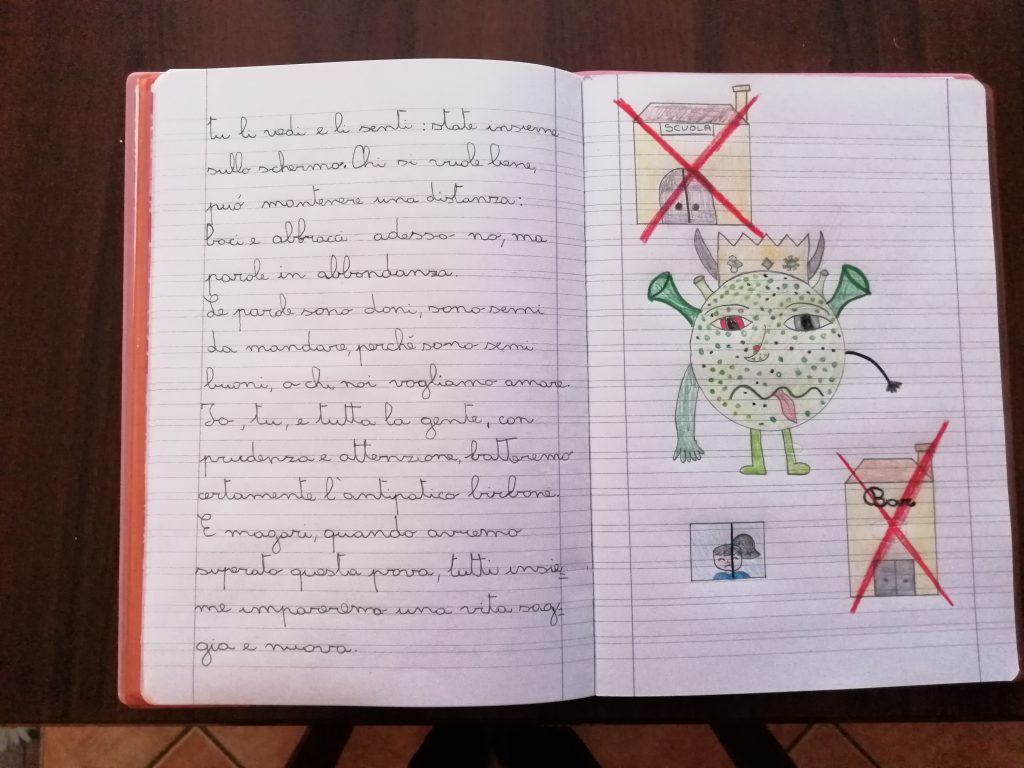 tu li vedi e li senti: state insieme
sullo schermo. Chi si vuole bene,
può mantenere una distanza:
baci e abbracci adesso no, ma
parole in abbondanza.
Le parole sono doni, sono semi
da mandare, perché sono semi
buoni, a chi noi vogliamo amare.
Io, tu, e tutta la gente, con
prudenza e attenzione, batteremo
certamente l'antipatico birbone.
E magari, quando avremo
superato questa prova, tutti insie=
me impareremo una vita sag=
gia e nuova.
SCUOLA
Bar